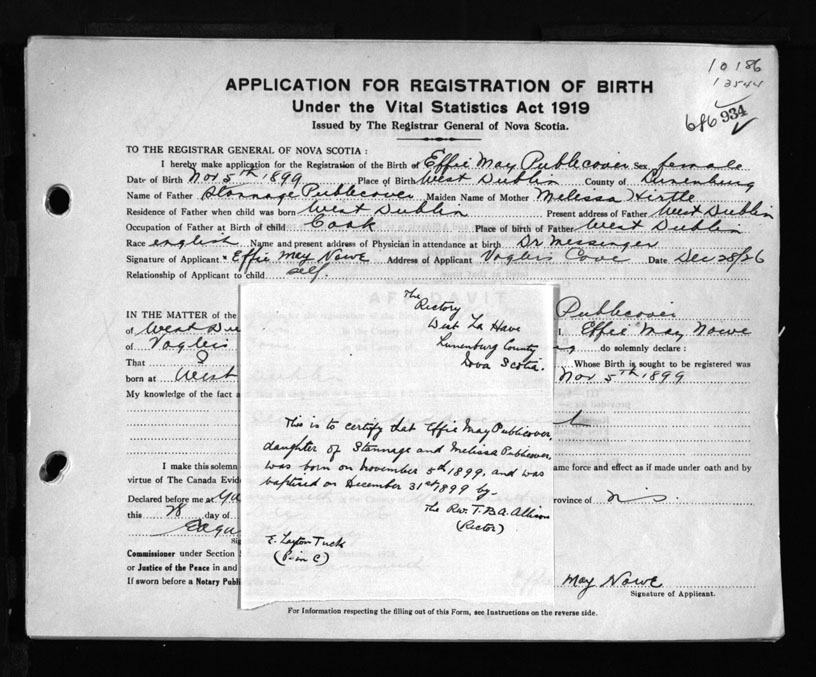 10186
13544
686 934
APPLICATION FOR REGISTRATION OF BIRTH
Under the Vital Statistics Act 1919
Issued by The Registrar General of Nova Scotia.
TO THE REGISTRAR GENERAL OF NOVA SCOTIA:
I hereby make application for the Registration of the Birth of Effie May Publicover Sex female
Date of Birth Nov 5th 1899 Place of Birth West Dublin County of Lunenburg
Name of Father Stannage Publicover Maiden Name of Mother Melissa Hirtle
Residence of Father when child was born West Dublin Present address of Father West Dublin
Occupation of Father at Birth of child Cook Place of birth of Father West Dublin
Race english Name and present address of Physician in attendance at birth Dr Messinger
Signature of Applicant Effie May Nowe Address of Applicant Voglers Cove Date Dec 28/26
Relationship of Applicant to child self.
IN THE MATTER of the
Publicover
of West Du
I, Effie May Nowe
of Voglers
do solemnly declare:
That
Whose Birth is sought to be registered was
born at West
Nov 5th 1899
My knowledge of the fact a
I make this solemn
ame force and effect as if made under oath and by
virtue of The Canada Evid
Declared before me at
rovince of N.S.
this 28 day of
Commissioner under Section
or Justice of the Peace in and
If sworn before a Notary Publi
May Nowe
Signature of Applicant.
For Information respecting the filling out of this Form, see Instructions on the reverse side.
The Rectory
West La Have
Lunenburg County
Nova Scotia.
This is to certify that Effie May Publicover,
daughter of Stannage and Melissa Publicover,
was born on November 5th 1899, and was
baptized on December 31st 1899 by-
The Rev. T.B.A. Allison
(Rector)
E. Layton Tuck
(P-in C)